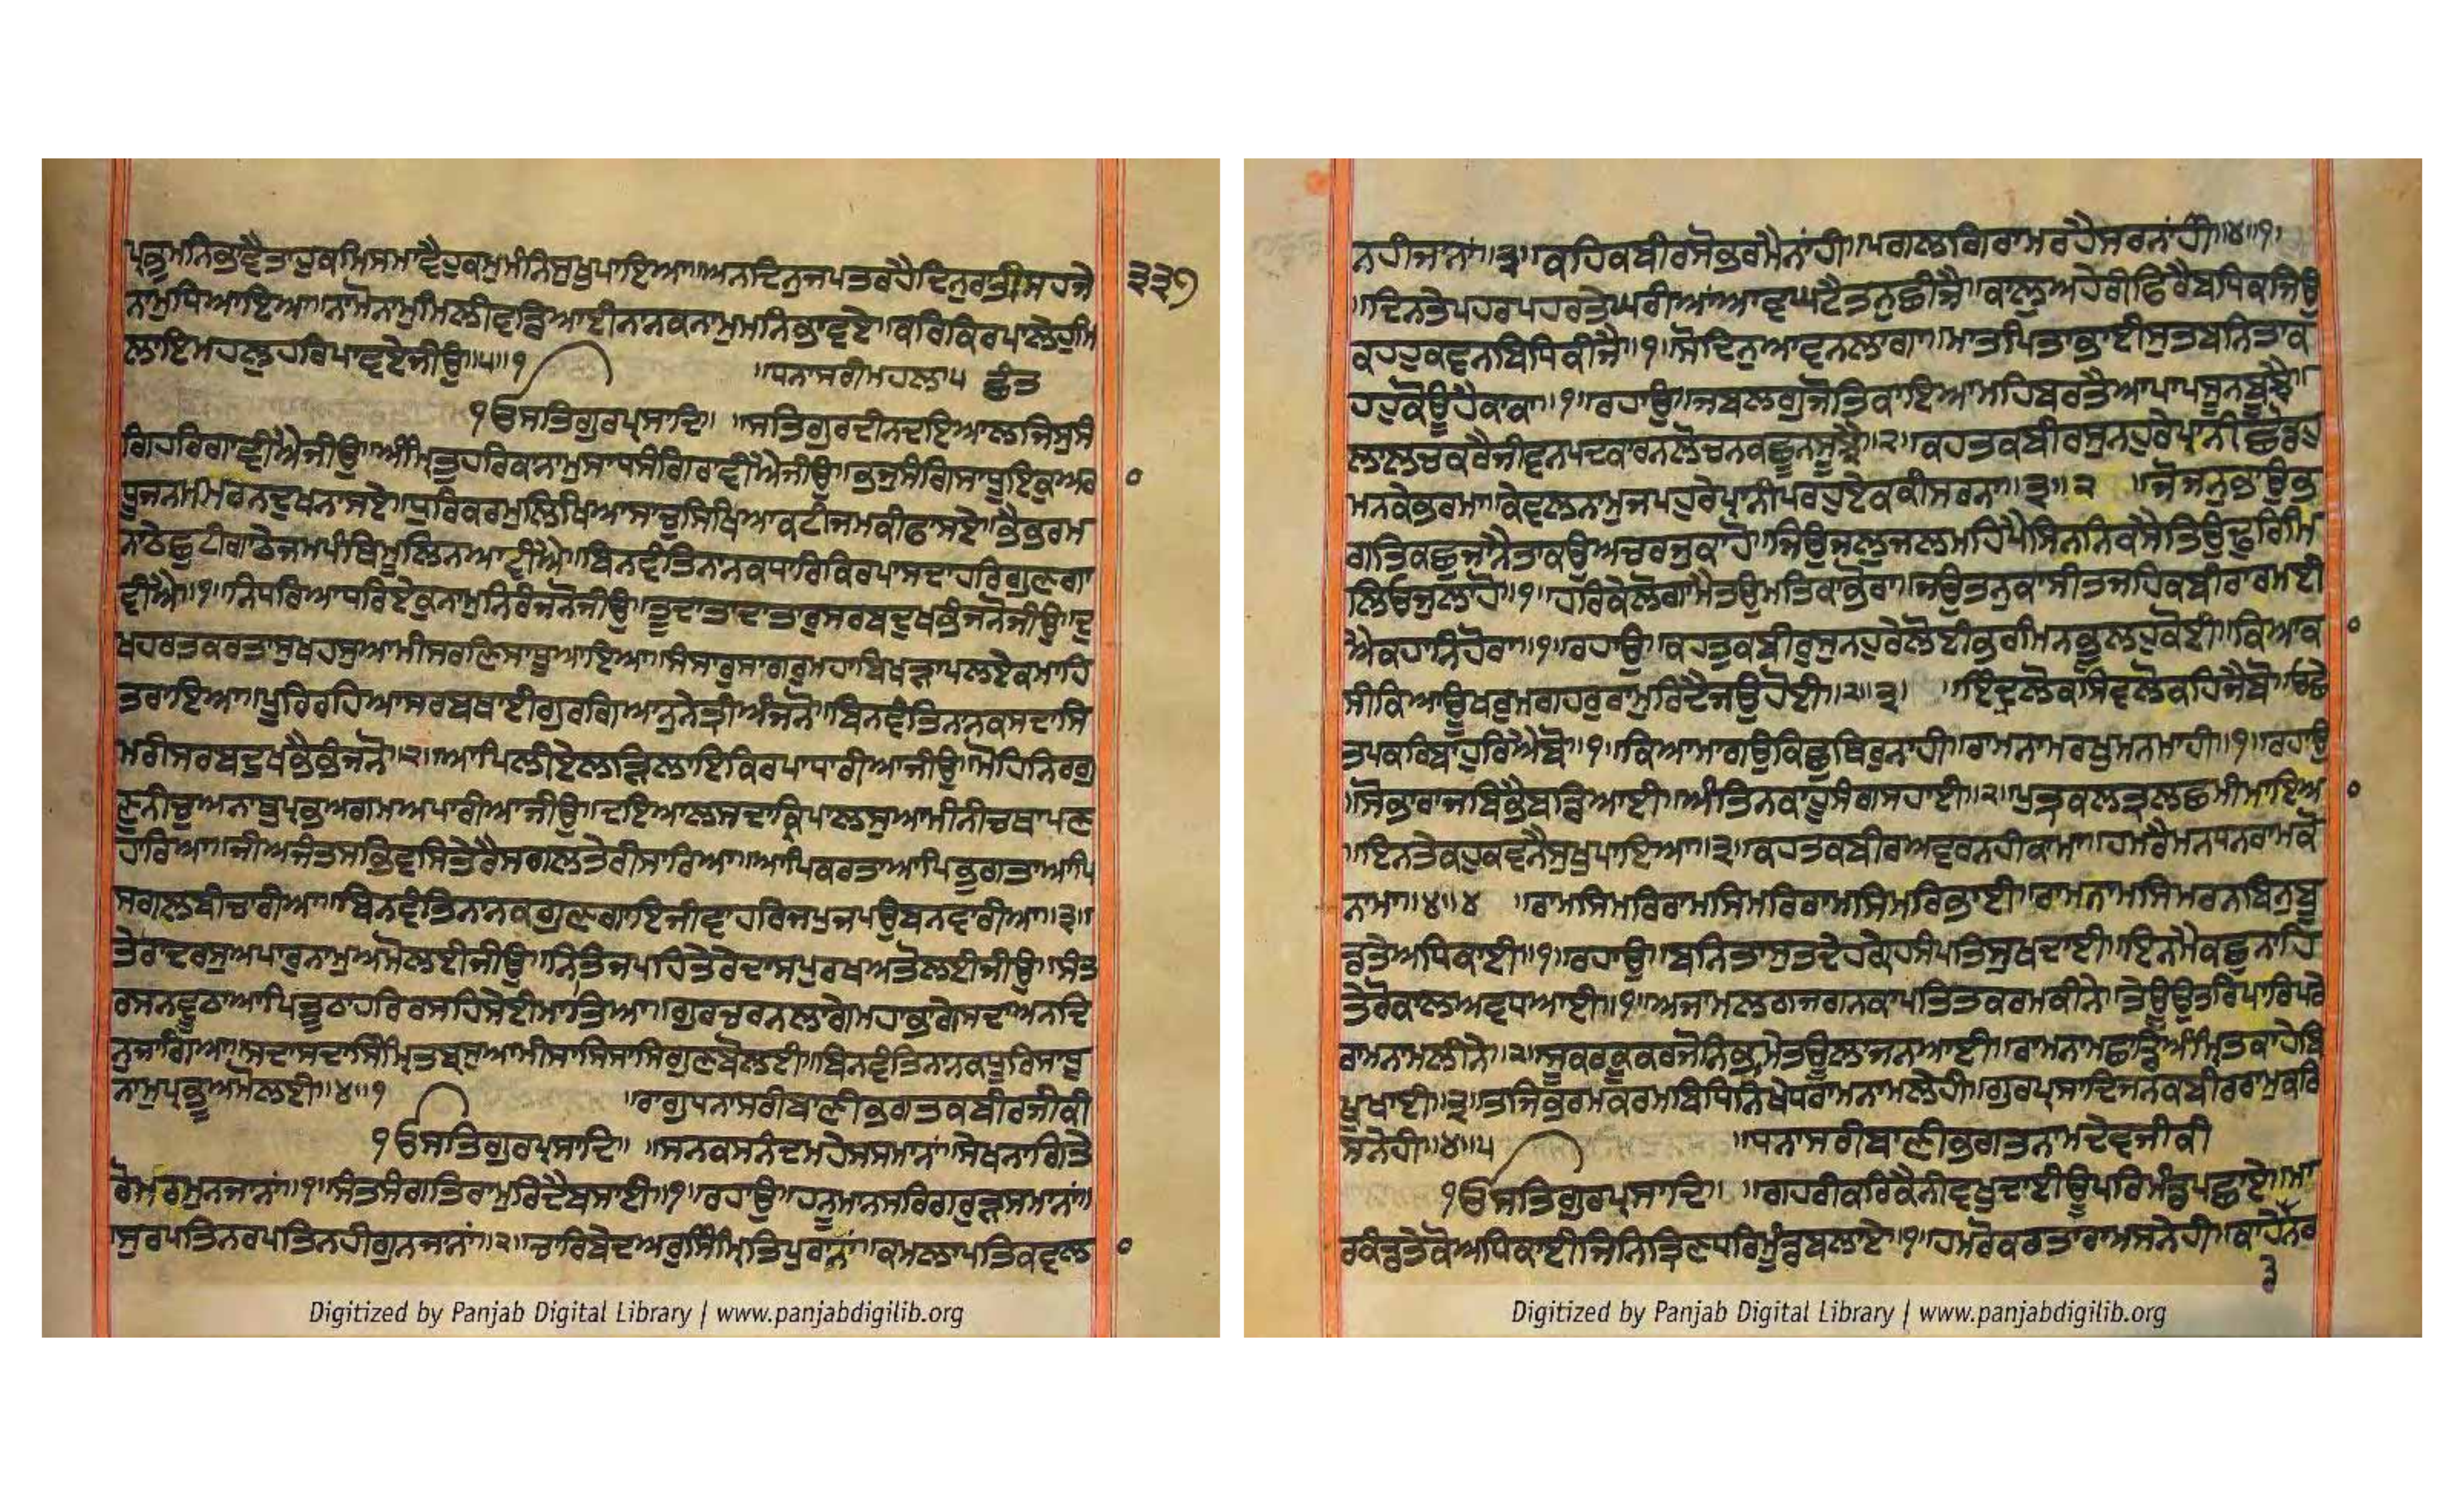 ਪ੍ਰਭਮਨਿਭਾਵੈਤਾਹੁਕਮਿਸਮਾਵੈਹੁਕਮੁਮੰਨਿਸੁਖੁਪਾਇਆ॥ਅਨਦਿਨੁਜਪਤਰਹੈਦਿਨੁਰਾਤੀਸਹਜੇ
੩੩੭
ਨਾਮੁਧਿਆਇਆ॥ਨਾਮੋਨਾਮੁਮਿਲੀਵਡਿਆਈਨਾਨਕਨਾਮੁਮਨਿਭਾਵਏ॥ਕਰਿਕਿਰਪਾਲੇਹੁਮਿ
ਲਾਇਮਹਲੁਹਰਿਪਾਵਏਜੀਉ॥੫॥੧
॥ਧਨਾਸਰੀਮਹਲਾ੫ ਛੰਤ
ੴਸਤਿਗੁਰਪ੍ਰਸਾਦਿ॥ ॥ਸਤਿਗੁਰਦੀਨਦਇਆਲਜਿਸੁਸੰ
ਗਿਹਰਿਗਾਵੀਐਜੀਉ॥ਅੰਮ੍ਰਿਤੁਹਰਿਕਨਾਮੁਸਾਧਸੰਗਿਰਾਵੀਐਜੀਉ॥ਭਜੁਸੰਗਿਸਾਧੂਇਕੁਅਰਾ
ਧੂਜਨਮਮਰਨਦੁਖਨਾਸਏ॥ਧੁਰਿਕਰਮੁਲਿਖਿਆਸਾਚੁਸਿਖਿਆਕਟੀਜਮਕੀਫਾਸਏ॥ਭੈਭਰਮ
ਨਾਠੇਛੁਟੀਗਾਠੇਜਮਪੰਥਿਮੂਲਿਨਆਵੀਐ॥ਬਿਨਵੰਤਿਨਾਨਕਧਾਰਿਕਿਰਪਾਸਦਾਹਰਿਗੁਣਗਾ
ਵੀਐ॥੧॥ਨਿਧਰਿਆਧਰਿਏਕੁਨਾਮੁਨਿਰੰਜਨੋਜੀਉ॥ਤੂਦਾਤਾਦਾਤਾਰੁਸਰਬਦੁਖਭੰਜਨੋਜੀਉ॥ਦੁ
ਖਹਰਤਕਰਤਾਸੁਖਹਸੁਆਮੀਸਰਣਿਸਾਧੂਆਇਆ॥ਸੰਸਾਰੁਸਾਗਰੁਮਹਾਬਿਖੜਾਪਲਏਕਮਾਹਿ
ਤਰਾਇਆ॥ਪੂਰਿਰਹਿਆਸਰਬਥਾਈਗੁਰਗਿਆਨੁਨੇਤ੍ਰੀਅੰਜਨੋ॥ਬਿਨਵੰਤਿਨਾਨਕਸਦਾਸਿ
ਮਰੀਸਰਬਦੁਖਭੈਭੰਜਨੋ॥੨॥ਆਪਿਲੀਏਲੜਿਲਾਇਕਿਰਪਾਧਾਰੀਆਜੀਉ॥ਮੋਹਿਨਿਰਗੁ
ਣੁਨੀਚੁਅਨਾਥੁਪ੍ਰਭਅਗਮਅਪਾਰੀਆਜੀਉ॥ਦਇਆਲਸਦਾਕ੍ਰਿਪਾਲਸੁਆਮੀਨੀਚਥਾਪਣ
ਹਾਰਿਆ॥ਜੀਅਜੰਤਸਭਿਵਸਿਤੇਰੈਸਗਲਤੇਰੀਸਾਰਿਆ॥ਆਪਿਕਰਤਾਆਪਿਭੁਗਤਾਆਪਿ
ਸਗਲਬੀਚਾਰੀਆ॥ਬਿਨਵੰਤਿਨਾਨਕਗੁਣਗਾਇਜੀਵਾਹਰਿਜਪੁਜਪਉਬਨਵਾਰੀਆ॥੩॥
ਤੇਰਾਦਰਸੁਅਪਾਰੁਨਾਮੁਅਮੋਲਈਜੀਉ॥ਨਿਤਿਜਪਹਿਤੇਰੇਦਾਸਪੁਰਖਅਤੋਲਈਜੀਉ॥ਸੰਤ
ਰਸਨਵੂਠਾਆਪਿਤੂਠਾਹਰਿਰਸਹਿਸੇਈਮਾਤਿਆ॥ਗੁਰਚਰਨਲਾਗੇਮਹਾਭਾਗੇਸਦਾਅਨਦਿ
ਨੁਜਾਗਿਆ॥ਸਦਾਸਦਾਸਿੰਮ੍ਰਿਤਬ੍ਯਸੁਆਮੀਸਾਸਿਸਾਸਿਗੁਣਬੋਲਈ॥ਬਿਨਵੰਤਿਨਾਨਕਧੂਰਿਸਾਧੂ
ਨਾਮੁਪ੍ਰਭੂਅਮੋਲਈ॥੪॥੧
॥ਰਾਗੁਧਨਾਸਰੀਬਾਣੀਭਗਤਕਬੀਰਜੀਕੀ
ੴਸਤਿਗੁਰਪ੍ਰਸਾਦਿ॥ ॥ਸਨਕਸਨੰਦਮਹੇਸਸਮਾਨਾਂ॥ਸੇਖਨਾਗਿਤੇ
ਰੋਮਰਮੁਨਜਾਨਾਂ॥੧॥ਸੰਤਸੰਗਤਿਰਾਮੁਰਿਦੈਬਸਾਈ॥੧॥ਰਹਾਉ॥ਹਨੂਮਾਨਸਰਿਗਰੁੜਸਮਾਨਾਂ॥
ਸੁਰਪਤਿਨਰਪਤਿਨਹੀਗੁਨਜਾਨਾਂ॥੨॥ਚਾਰਿਬੇਦਅਰੁਸਿੰਮ੍ਰਿਤਿਪੁਰਾਨਾਂ॥ਕਮਲਾਪਤਿਕਵਲਾ
ਨਹੀਜਾਨਾਂ॥੩॥ਕਹਿਕਬੀਰਸੋਭਰਮੈਨਾਂਹੀ॥ਪਗਲਗਿਰਾਮਰਹੈਸਰਨਾਂਹੀ॥੪॥੧॥
॥ਦਿਨਤੇਪਹਰਪਹਰਤੇਘਰੀਆਂਆਵਘਟੈਤਨੁਛੀਜੈ॥ਕਾਲੁਅਹੇਰੀਫਿਰੈਬਧਿਕਜਿਉ
ਕਹਹੁਕਵਨਬਿਧਿਕੀਜੈ॥੧॥ਸੋਦਿਨੁਆਵਨਲਾਗਾ॥ਮਾਤਪਿਤਾਭਾਈਸੁਤਬਨਿਤਾਕ
ਹਹੁਕੋਊਹੈਕਾਕਾ॥੧॥ਰਹਾਉ॥ਜਬਲਗੁਜੋਤਿਕਾਇਆਮਹਿਬਰਤੈਆਪਾਪਸੂਨਬੂਝੈ॥
ਲਾਲਚਕਰੈਜੀਵਨਪਦਕਾਰਨਲੋਚਨਕਛੂਨਸੂਝੈ॥੨॥ਕਹਤਕਬੀਰਸੁਨਹੁਰੇਪ੍ਰਾਨੀਛੋਡਹੁ
ਮਨਕੇਭਰਮਾ॥ਕੇਵਲਨਾਮੁਜਪਹੁਰੇਪ੍ਰਾਨੀਪਰਹੁਏਕਕੀਸਰਨਾ॥੩॥੨ ॥ਜੋਜਨੁਭਾਉਭ
ਗਤਿਕਛੁਜਾਨੈਤਾਕਉਅਚਰਜੁਕਾਹੋ॥ਜਿਉਜਲੁਜਲਮਹਿਪੈਸਿਨਨਿਕਸੈਤਿਉਢੁਰਿਮਿ
ਲਿਓਜੁਲਾਹੋ॥੧॥ਹਰਿਕੇਲੋਗਾਮੈਤਉਮਤਿਕਾਭੋਰਾ॥ਜਉਤਨੁਕਾਸੀਤਜਹਿਕਬੀਰਾਰਮਈ
ਐਕਹਾਨਿਹੋਰਾ॥੧॥ਰਹਾਉ॥ਕਹਤੁਕਬੀਰੁਸੁਨਹੁਰੇਲੋਈਭਰਮਿਨਭੂਲਹੁਕੋਈ॥ਕਿਆਕਾ
ਸੀਕਿਆਊਖਰੁਮਗਹਰੁਰਾਮੁਰਿਦੈਜਉਹੋਈ॥੨॥੩॥ ॥ਇੰਦ੍ਰਲੋਕਸਿਵਲੋਕਹਿਜੈਬੋ॥ਓਛੇ
ਤਪਕਰਿਬਾਹੁਰਿਐਬੋ॥੧॥ਕਿਆਮਾਗਉਕਿਛੁਥਿਰੁਨਾਹੀ॥ਰਾਮਨਾਮਰਖੁਮਨਮਾਹੀ॥੧॥ਰਹਾਉ
॥ਸੋਭਾਰਾਜਬਿਭੈਬਡਿਆਈ॥ਅੰਤਿਨਕਾਹੂਸੰਗਸਹਾਈ॥੨॥ਪੁਤ੍ਰਕਲਤ੍ਰਲਛਮੀਮਾਇਆ
॥ਇਨਤੇਕਹੁਕਵਨੈਸੁਖੁਪਾਇਆ॥੩॥ਕਹਤਕਬੀਰਅਵਰਨਹੀਕਾਮਾ॥ਹਮਰੈਮਨਧਨਰਾਮਕੋ
ਨਾਮਾ॥੪॥੪ ॥ਰਾਮਸਿਮਰਿਰਾਮਸਿਮਰਿਰਾਮਸਿਮਰਿਭਾਈ॥ਰਾਮਨਾਮਸਿਮਰਨਬਿਨੁਬੂ
ਡਤੇਅਧਿਕਾਈ॥੧॥ਰਹਾਉ॥ਬਨਿਤਾਸੁਤਦੇਹਗ੍ਰੇਹਸੰਪਤਿਸੁਖਦਾਈ॥ਇਨਮੈਕਛੁਨਾਹਿ
ਤੇਰੋਕਾਲਅਵਧਆਈ॥੧॥ਅਜਾਮਲਗਜਗਨਕਾਪਤਿਤਕਰਮਕੀਨੇ॥ਤੇਊਉਤਰਿਪਾਰਿਪਰੇ
ਰਾਮਨਾਮਲੀਨੇ॥੨॥ਸੂਕਰਕੂਕਰਜੋਨਿਭ੍ਰਮੇਤਊਲਾਜਨਆਈ॥ਰਾਮਨਾਮਛਾਡਿਅੰਮ੍ਰਿਤਕਾਹੇਬਿ
ਖੁਖਾਈ॥੩॥ਤਜਿਭਰਮਕਰਮਬਿਧਿਨਿਖੇਧਰਾਮਨਾਮਲੇਹੀ॥ਗੁਰਪ੍ਰਸਾਦਿਜਨਕਬੀਰਰਾਮੁਕਰਿ
ਸਨੇਹੀ॥੪॥੫ ॥ਧਨਾਸਰੀਬਾਣੀਭਗਤਨਾਮਦੇਵਜੀਕੀ
ੴਸਤਿਗੁਰਪ੍ਰਸਾਦਿ॥ ॥ਗਹਰੀਕਰਿਕੈਨੀਵਖੁਦਾਈਊਪਰਿਮੰਡਪਛਾਏ॥ਮਾ
ਰਕੰਡੇਤੇਕੋਅਧਿਕਾਈਜਿਨਿਤ੍ਰਿਣਧਰਿਮੂੰਡਬਲਾਏ॥੧॥ਹਮਰੋਕਰਤਾਰਾਮਸਨੇਹੀ॥ਕਾਹੇਨਰ
੩
Digitized by Panjab Digital Library | www.panjabdigilib.org
Digitized by Panjab Digital Library | www.panjabdigilib.org